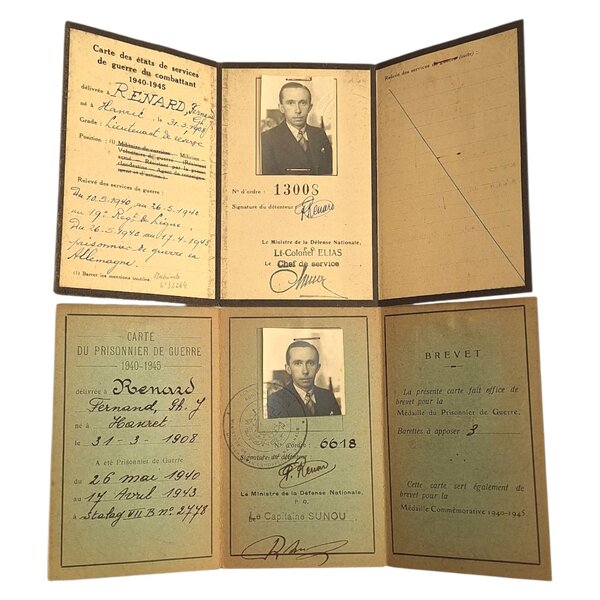 Carte des états de services
de guerre du combattant
1940-1945
délivrée à RENARD, Fernand
Ph. J
né à Hanret le 31.3.1908
Grade : Lieutenant de réserve
Position : (1) Militaire de carrière - Milicien -
Volontaire de guerre (Réserviste
armé - Résistant par la presse
clandestine - Agent de renseigne-
ment et d'action.)
Relevé des services de guerre :
Du 10.5.1940 au 26.5.1940
au 19e Regt de Ligne.
Du 26.5.1940 au 17.4.1943
prisonnier de guerre en
Allemagne.
(1) Barrer les mentions inutiles.
N° d'ordre : 13008
Signature du détenteur
Le Ministre de la Défense Nationale,
Lt-Colonel ELIAS
Le Chef de service
Relevé des services de guerre (suite) :
CARTE
DU PRISONNIER DE GUERRE
1940-1945
délivrée à Renard
Fernand, Ph. J
né à Hanret
le 31-3-1908
A été Prisonnier de Guerre
du 26 mai 1940
au 17 Avril 1943
à Stalag VII B n° 2778
N° d'ordre : 6618
Signature du détenteur
Le Ministre de la Défense Nationale,
P. O.
Le Capitaine SUNOU
BREVET
La présente carte fait office de
brevet pour la
Médaille du Prisonnier de Guerre,
Barettes à apposer 3
Cette carte sert également de
brevet pour la
Médaille Commémorative 1940-1945.